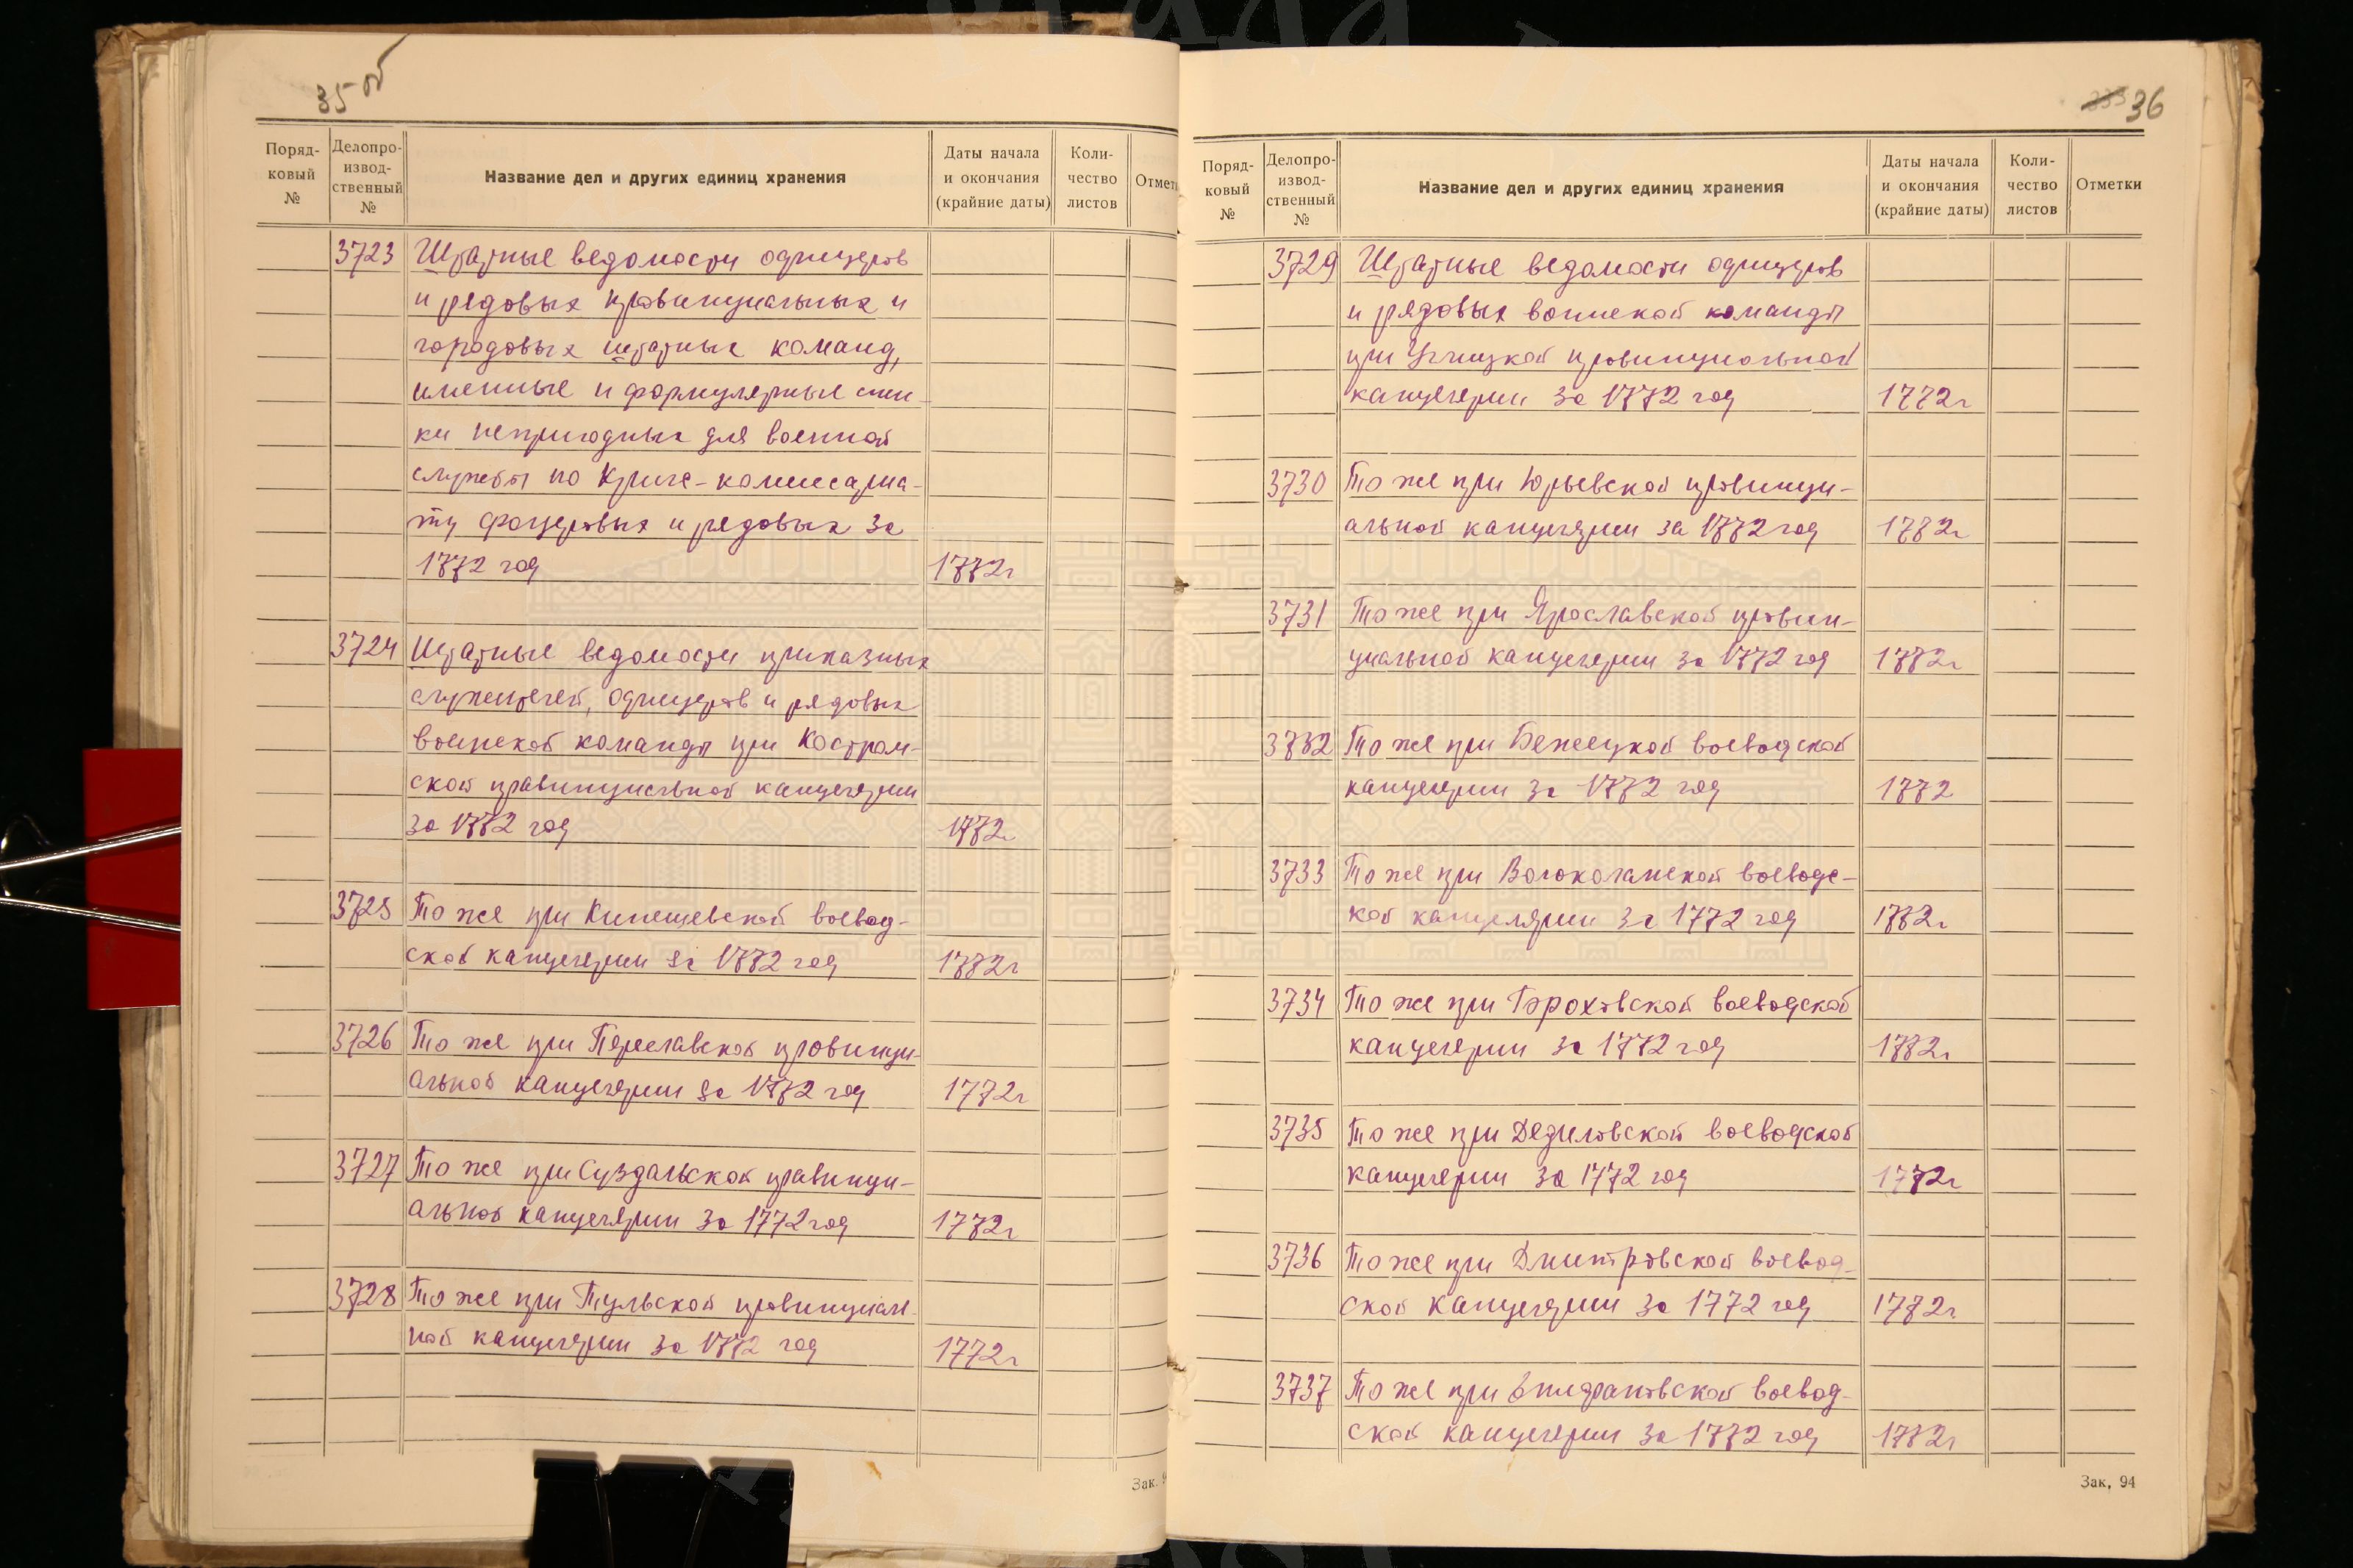 35 об
Поряд-
ковый
№
Делопро-
извод-
ственный
№
Название дел и других единиц хранения
Даты начала
и окончания
(крайние даты)
Коли-
чество
листов
Отметк
3723 Штатные ведомости офицеров
и рядовых провинциальных и
городовых штатных команд,
именные и формулярные спис-
ки непригодных для военной
службы по Кригс-комиссариа-
ту офицеровых и рядовых за
1772 год 1772г
3724 Штатные ведомости приказных
служителей, офицеров и рядовых
воинской команды при Костром-
ской провинциальной канцелярии
за 1772 год 1772г
3725 То же при Кинешевской воевод-
ской канцелярии за 1772 год 1772г
3726 То же при Переславской провинци-
альной канцелярии за 1772 год 1772г
3727 То же при Суздальской провинци-
альной канцелярии за 1772 год 1772г
3728 То же при Тульской провинциаль-
ной канцелярии за 1772 год 1772г
Зак. 9
36
Поряд-
ковый
№
Делопро-
извод-
ственный
№
Название дел и других единиц хранения
Даты начала
и окончания
(крайние даты)
Коли-
чество
листов
Отметки
3729 Штатные ведомости офицеров
и рядовых воинской команды
при Углицкой провинциальной
канцелярии за 1772 год 1772г
3730 То же при Юрьевской провинци-
альной канцелярии за 1772 год 1772г
3731 То же при Ярославской провин-
циальной канцелярии за 1772 год 1772г
3732 То же при Бежецкой воеводской
канцелярии за 1772 год 1772
3733 То же при Волоколамской воеводс-
кой канцелярии за 1772 год 1772г
3734 То же при Гороховской воеводской
канцелярии за 1772 год 1772г
3735 То же при Дедиловской воеводской
канцелярии за 1772 год 1772г
3736 То же при Дмитровской воевод-
ской канцелярии за 1772 год 1772г
3737 То же при Епифановской воевод-
ской канцелярии за 1772 год 1772г
Зак, 94